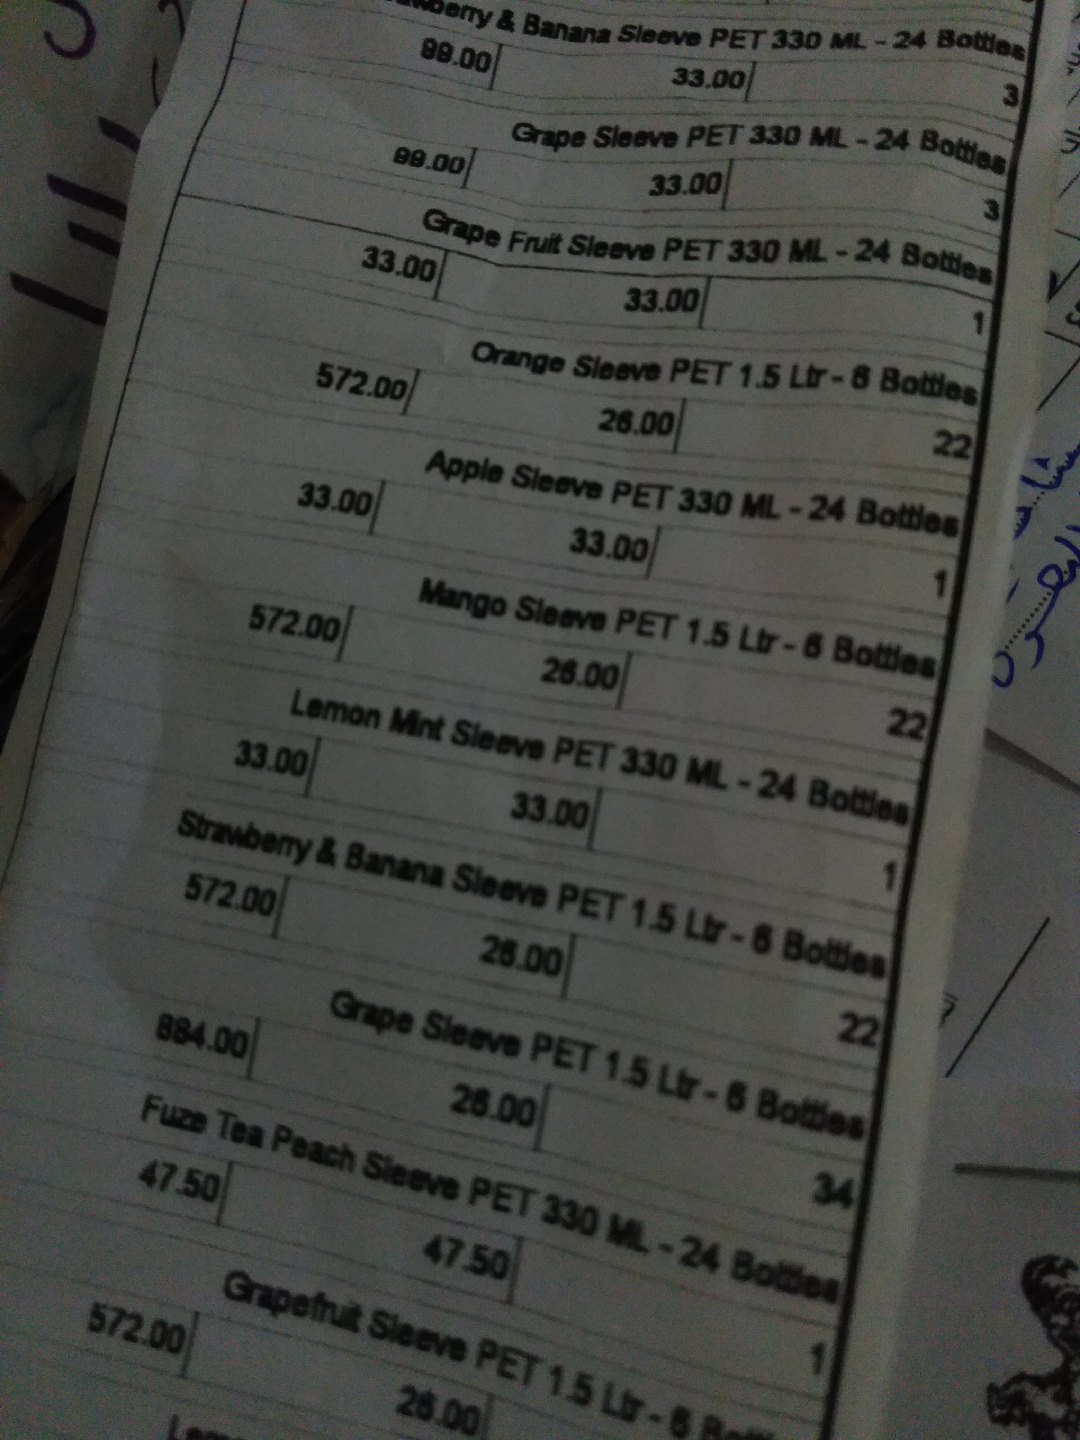 & Banana Sleeve PET 330 ML - 24 Bottles
99.00 33.00 3
Grape Sleeve PET 330 ML - 24 Bottles
99.00 33.00 3
Grape Fruit Sleeve PET 330 ML - 24 Bottles
33.00 33.00 1
Orange Sleeve PET 1.5 Ltr - 6 Bottles
572.00 26.00 22
Apple Sleeve PET 330 ML - 24 Bottles
33.00 33.00 1
Mango Sleeve PET 1.5 Ltr - 6 Bottles
572.00 26.00 22
Lemon Mint Sleeve PET 330 ML - 24 Bottles
33.00 33.00 1
Strawberry & Banana Sleeve PET 1.5 Ltr - 6 Bottles
572.00 26.00 22
Grape Sleeve PET 1.5 Ltr - 6 Bottles
884.00 26.00 34
Fuze Tea Peach Sleeve PET 330 ML - 24 Bottles
47.50 47.50 1
Grapefruit Sleeve PET 1.5 Ltr - 6
572.00 26.00